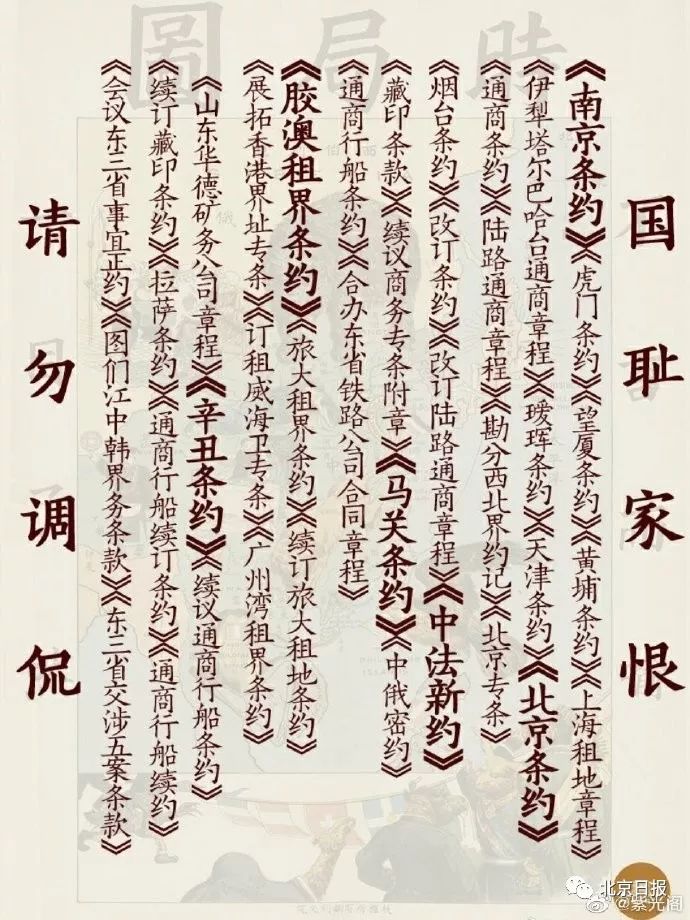 時局圖
国耻家恨
《南京条约》《虎门条约》《望厦条约》《黄埔条约》《上海租地章程》
《伊犁塔尔巴哈台通商章程》《瑷珲条约》《天津条约》《北京条约》
《通商条约》《陆路通商章程》《勘分西北界约记》《北京专条》
《烟台条约》《改订条约》《改订陆路通商章程》《中法新约》
《藏印条款》《续议商务专条附章》《马关条约》《中俄密约》
《通商行船条约》《合办东省铁路公司合同章程》
《胶澳租界条约》《旅大租界条约》《续订旅大租地条约》
《展拓香港界址专条》《订租威海卫专条》《广州湾租界条约》
《山东华德矿务公司章程》《辛丑条约》《续议通商行船条约》
《续订藏印条约》《拉萨条约》《通商行船续订条约》《通商行船续约》
《会议东三省事宜正约》《图们江中韩界务条款》《东三省交涉五案条款》
请勿调侃
北京日报
@紫光阁